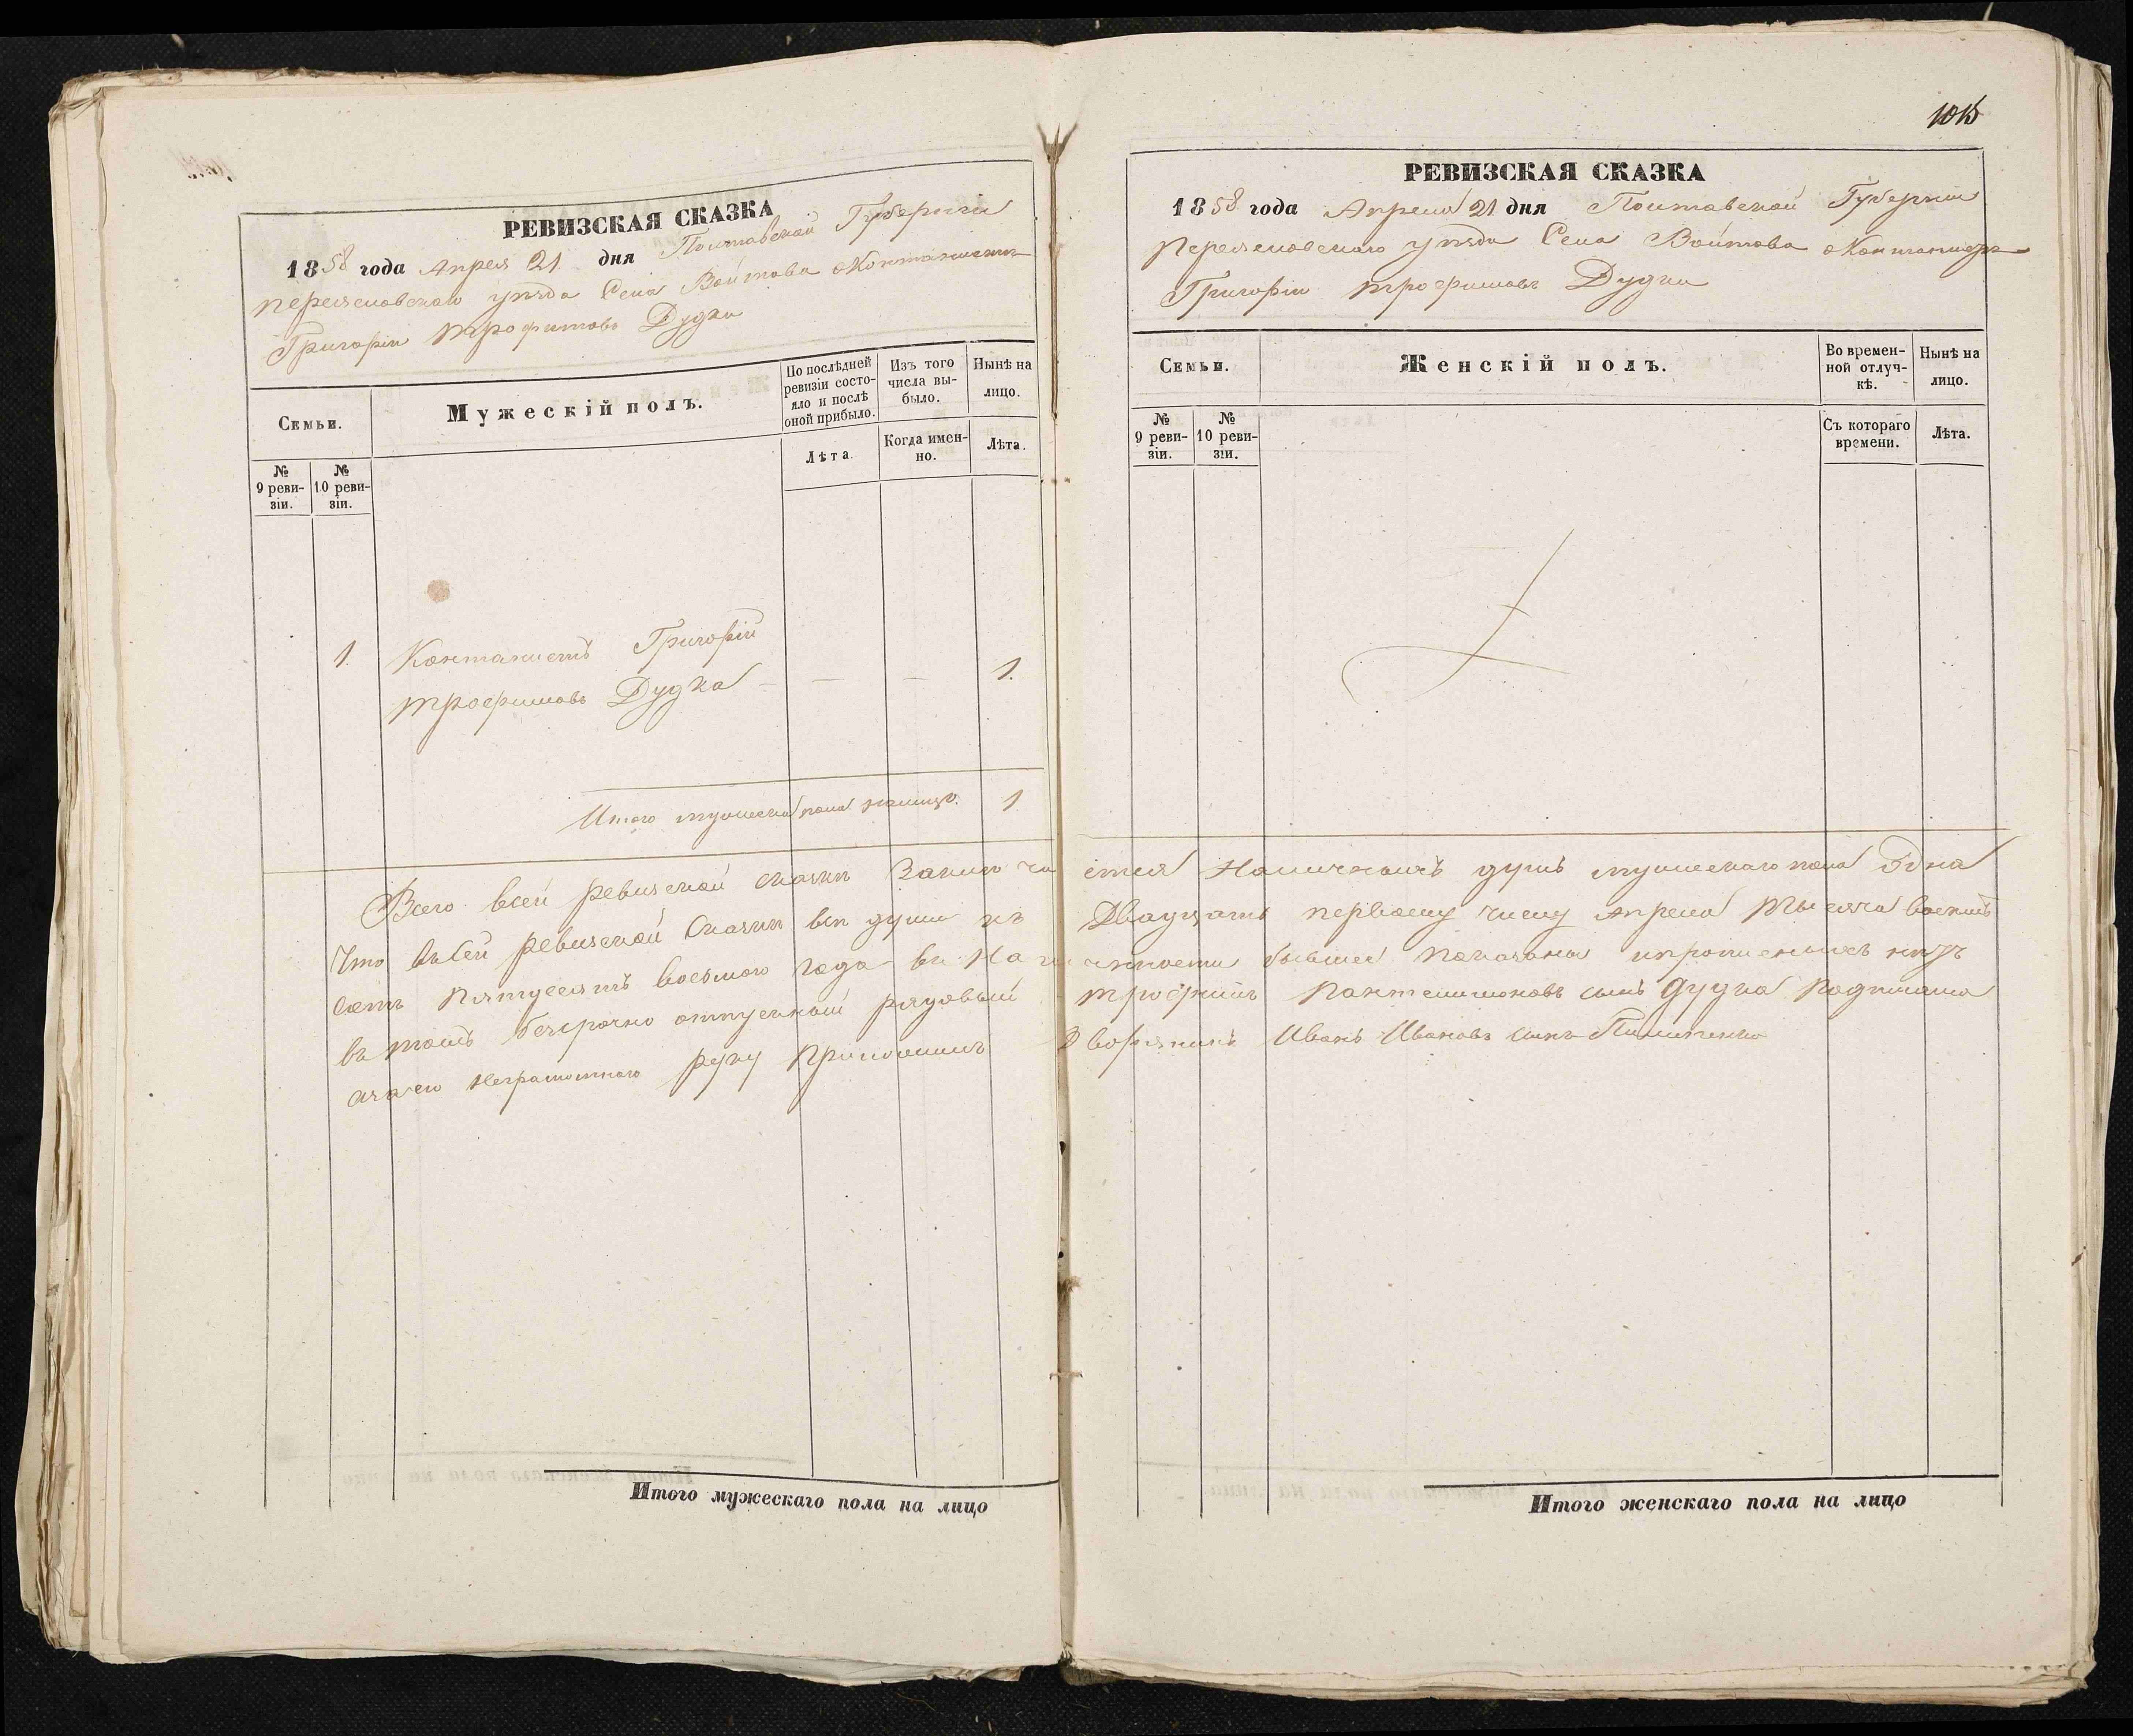 РЕВИЗСКАЯ СКАЗКА
1858 года Апреля 21 дня Полтавской Губернии
Переяславского уѣзда Села Войтова о Контонистѣ
Григоріи Трофимовѣ Дудки
Семьи.
Мужескій полъ.
По послѣдней ревизіи состояло и послѣ оной прибыло.
Изъ того числа выбыло.
Нынѣ на лицо.
№ 9 ревизіи.
№ 10 ревизіи.
Лѣта.
Когда именно.
Лѣта.
1. Контонистъ Григорій
Трофимовъ Дудка — — — 1.
Итого мужеска пола на лицо. 1
1015
РЕВИЗСКАЯ СКАЗКА
1858 года Апреля 21 дня Полтавской Губерніи
Переясловского уѣзда Села Войтова о Контонистѣ
Григоріи Трофимовѣ Дудки
Семьи.
Женскій полъ.
Во временной отлучкѣ.
Нынѣ на лицо.
№ 9 ревизіи.
№ 10 ревизіи.
Съ котораго времени.
Лѣта.
Всего всей ревизской сказки заключается наличныхъ душъ мужескаго пола одна
Что въ сей ревизской сказки всѣ души къ Двадцать первому числу Апреля Тысяча восемь
сотъ пятдесятъ восьмого года въ наличности бывшея показаны
въ томъ безсрочно отпускной рядовый Трофимъ Пантелимоновъ сынъ Дудка
а за его неграмотного руку приложилъ Дворянинъ Иванъ Ивановъ сынъ
Итого мужескаго пола на лицо
Итого женскаго пола на лицо